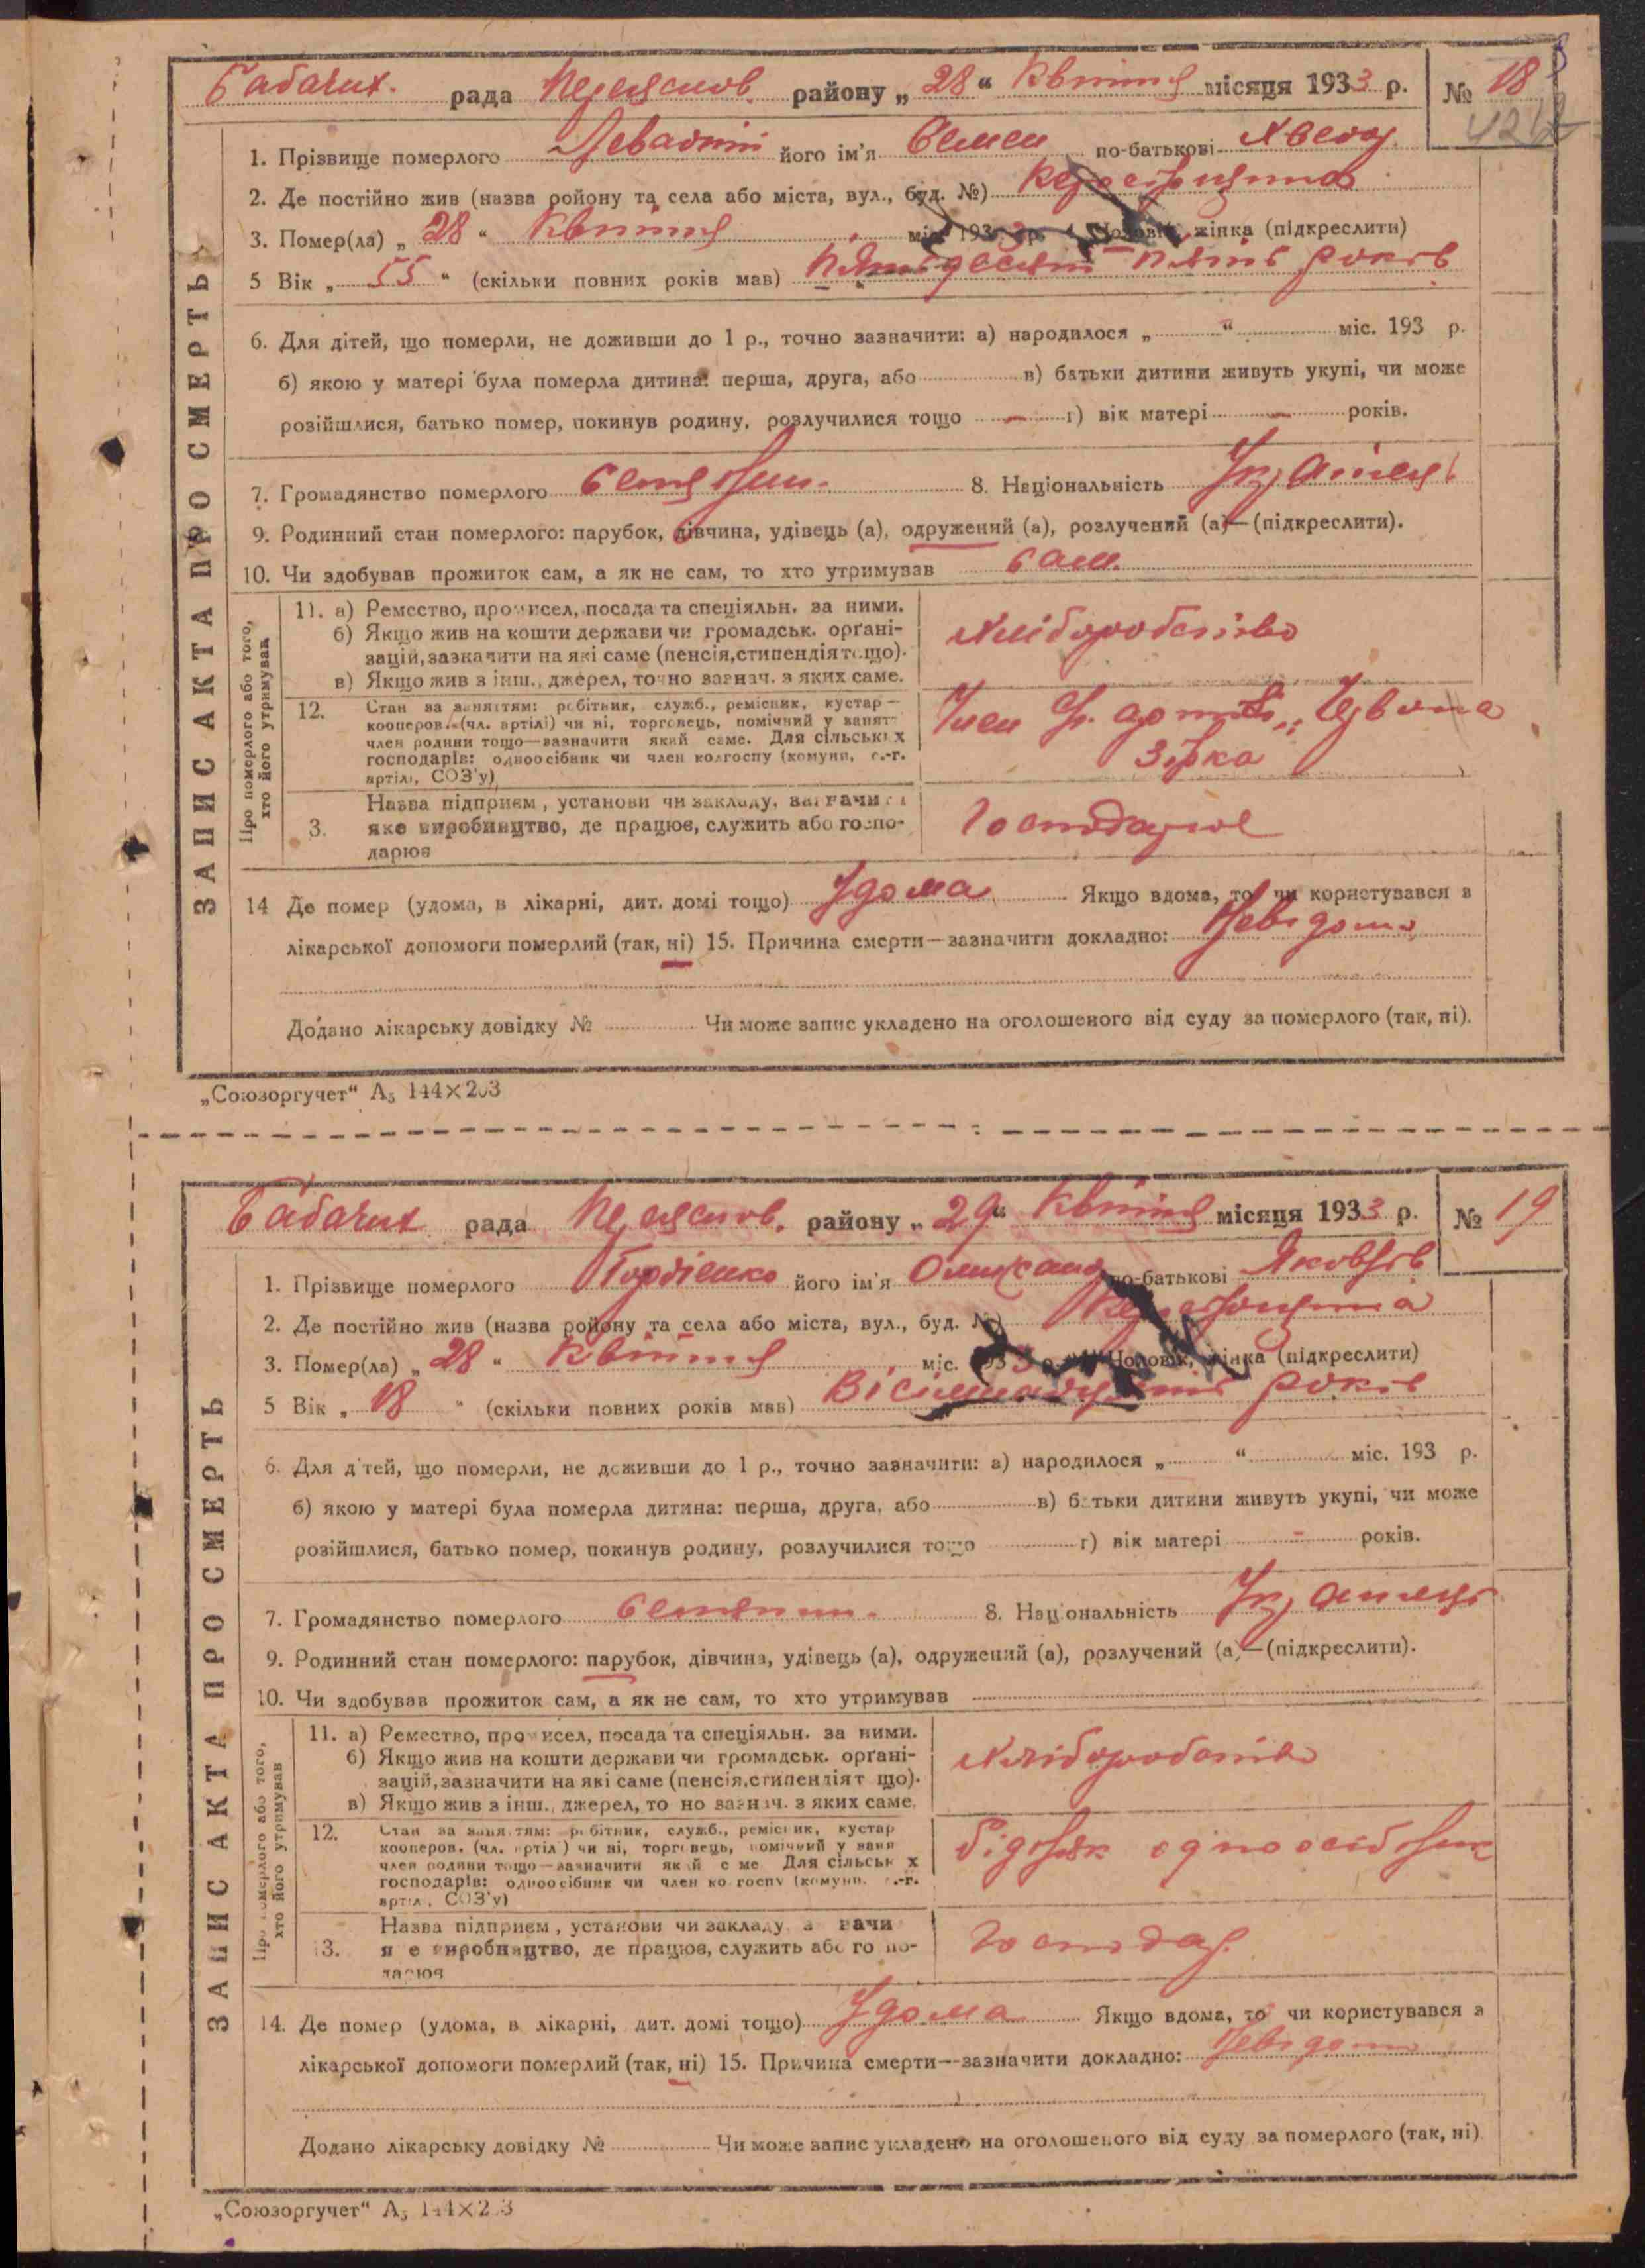 Бабачих. рада Переяслов. району „ 28 “ Квітня місяця 1933 р. № 18
1. Прізвище померлого його ім'я Семен по-батькові Хведор.
2. Де постійно жив (назва ройону та села або міста, вул., буд. №)
3. Помер(ла) „ 28 “ Квітня міс. 1933 р. 4. Чоловік, жінка (підкреслити)
5 Вік „ 55 “ (скільки повних років мав) Пятьдесят пять років
6. Для дітей, що померли, не доживши до 1 р., точно зазначити: а) народилося „ “ міс. 193 р.
б) якою у матері була померла дитина: перша, друга, або в) батьки дитини живуть укупі, чи може
розійшлися, батько помер, покинув родину, розлучилися тощо – г) вік матері – років.
7. Громадянство померлого Селянин. 8. Національність Українець
9. Родинний стан померлого: парубок, дівчина, удівець (а), одружений (а), розлучений (а)—(підкреслити).
10. Чи здобував прожиток сам, а як не сам, то хто утримував сам.
ЗАПИС АКТА ПРО СМЕРТЬ
Про померлого або того,
хто його утримував
11. а) Ремество, промисел, посада та спеціяльн. за ними.
б) Якщо жив на кошти держави чи громадськ. орґані-
зацій, зазначити на які саме (пенсія, стипендія тощо).
в) Якщо жив з інш., джерел, точно зазнач. з яких саме.
Хліборобство
12. Стан за заняттям: робітник, служб., ремісник, кустар—
кооперов. (чл. артілі) чи ні, торговець, помічний у занят
член родини тощо—зазначити який саме. Для сільських
господарів: одноосібник чи член колгоспу (комуни, с.-г.
артілі, СОЗ'у)
Член Гр. артілі „Червона
Зірка
3. Назва підприєм, установи чи закладу, зазначити
яке виробництво, де працює, служить або госпо-
дарює
Господарює
14 Де помер (удома, в лікарні, дит. домі тощо) Удома Якщо вдома, то чи користувався з
лікарської допомоги померлий (так, ні) 15. Причина смерти—зазначити докладно: Невідомо
Додано лікарську довідку № Чи може запис укладено на оголошеного від суду за померлого (так, ні).
„Союзоргучет“ А5 144×203
Бабачих рада Переяслов. району „ 29 “ Квітня місяця 1933 р. № 19
1. Прізвище померлого Гордієнко його ім'я Олександ по-батькові Яковлів
2. Де постійно жив (назва ройону та села або міста, вул., буд. №)
3. Помер(ла) „ 28 “ Квітня міс. 1933 р. 4. Чоловік, жінка (підкреслити)
5 Вік „ 18 “ (скільки повних років мав) Вісімнадцять років
6. Для дітей, що померли, не доживши до 1 р., точно зазначити: а) народилося „ “ міс. 193 р.
б) якою у матері була померла дитина: перша, друга, або в) батьки дитини живуть укупі, чи може
розійшлися, батько помер, покинув родину, розлучилися тощо г) вік матері – років.
7. Громадянство померлого Селянин. 8. Національність Українець
9. Родинний стан померлого: парубок, дівчина, удівець (а), одружений (а), розлучений (а)—(підкреслити).
10. Чи здобував прожиток сам, а як не сам, то хто утримував
ЗАПИС АКТА ПРО СМЕРТЬ
Про померлого або того,
хто його утримував
11. а) Ремество, промисел, посада та спеціяльн. за ними.
б) Якщо жив на кошти держави чи громадськ. орґані-
зацій, зазначити на які саме (пенсія, стипендія тощо).
в) Якщо жив з інш., джерел, точно зазнач. з яких саме.
Хліборобство
12. Стан за заняттям: робітник, служб., ремісник, кустар
кооперов. (чл. артілі) чи ні, торговець, помічний у занят
член родини тощо—зазначити який саме. Для сільських
господарів: одноосібник чи член колгоспу (комуни, с.-г.
артілі, СОЗ'у)
Бідняк одноосібник
3. Назва підприєм, установи чи закладу, зазначи
яке виробництво, де працює, служить або госпо-
дарює
Господар.
14. Де помер (удома, в лікарні, дит. домі тощо) Удома Якщо вдома, то чи користувався з
лікарської допомоги померлий (так, ні) 15. Причина смерти—зазначити докладно: Невідомо
Додано лікарську довідку № Чи може запис укладено на оголошеного від суду за померлого (так, ні)
„Союзоргучет“ А5 144×203